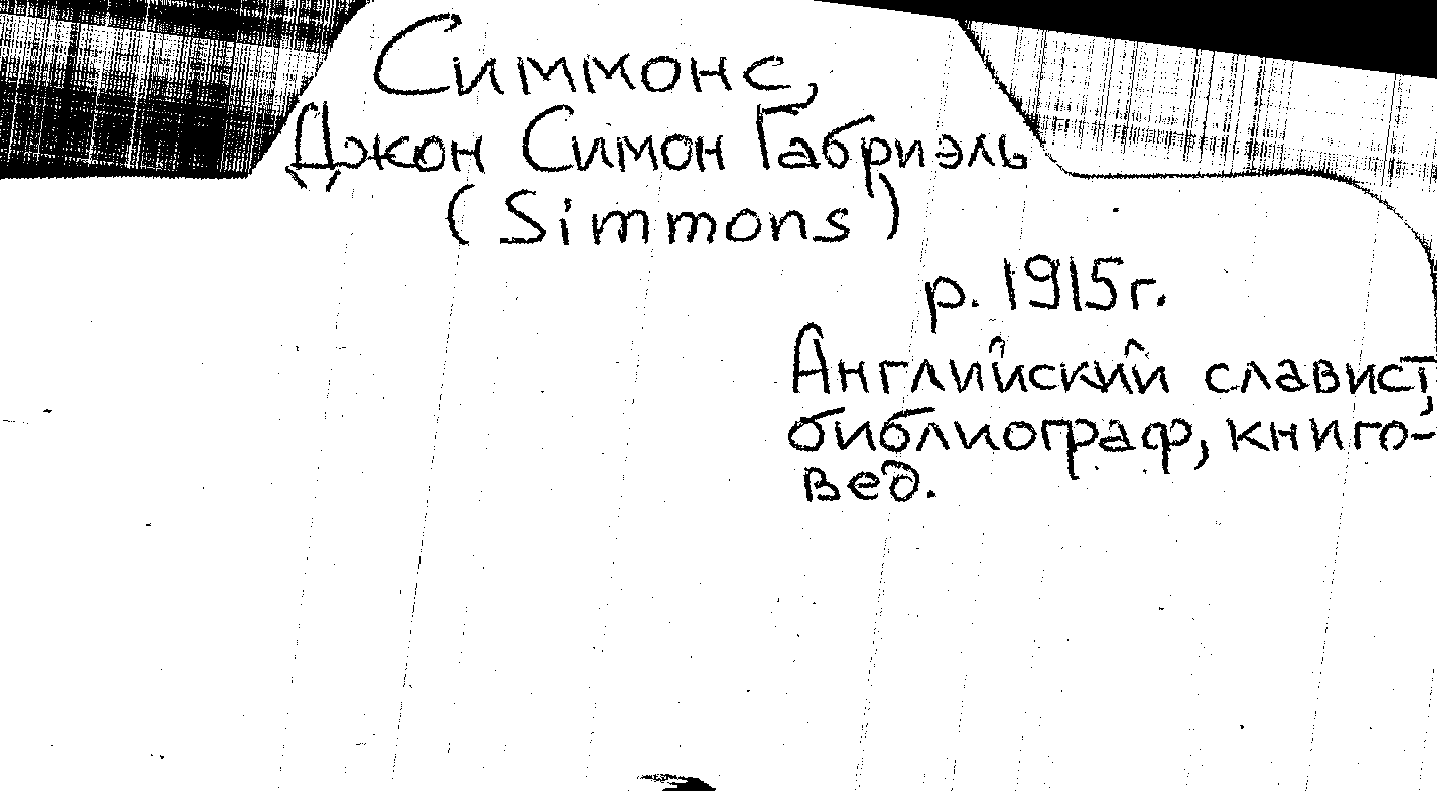 Симмонс,
Джон Симон Габриэль
(Simmons)
р. 1915г.
Английский славист,
библиограф, книго-
вед.